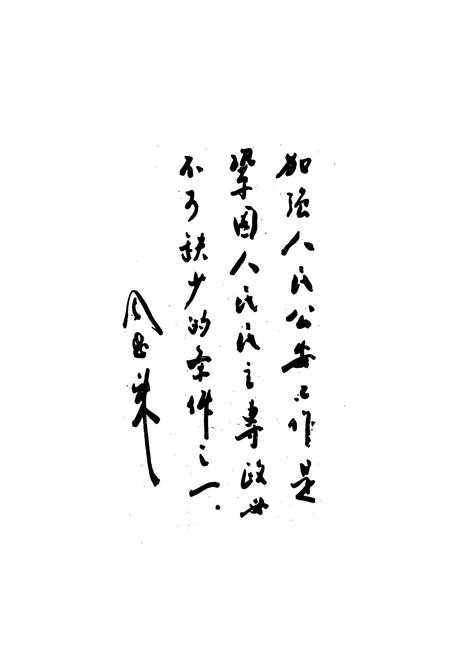 加强人民公安工作是
鞏固人民民主專政
不可缺少的条件之一.
周恩來